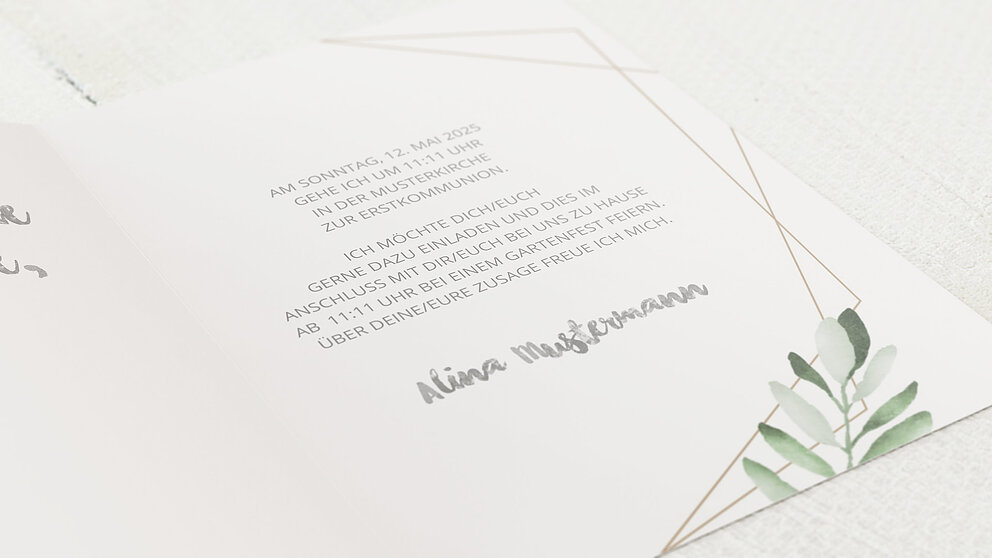 AM SONNTAG, 12. MAI 2025
GEHE ICH UM 11:11 UHR
IN DER MUSTERKIRCHE
ZUR ERSTKOMMUNION.
ICH MÖCHTE DICH/EUCH
GERNE DAZU EINLADEN UND DIES IM
ANSCHLUSS MIT DIR/EUCH BEI UNS ZU HAUSE
AB 11:11 UHR BEI EINEM GARTENFEST FEIERN.
ÜBER DEINE/EURE ZUSAGE FREUE ICH MICH.
Alina Mustermann